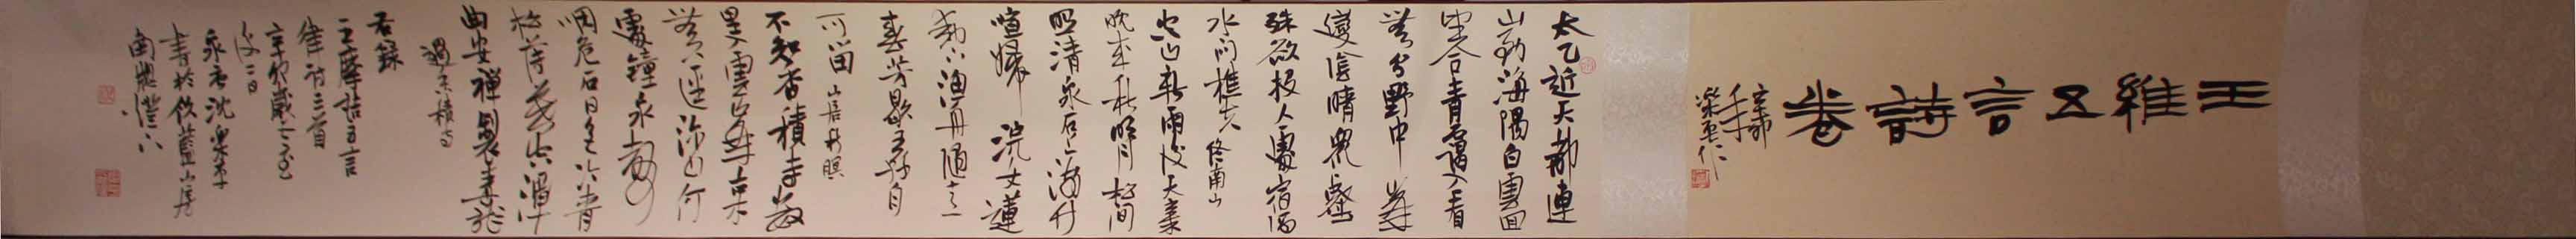 王維五言詩卷
太乙近天都連
山到海隅白雲回
望合青靄入看
無分野中峯
變陰晴衆壑
殊欲投人處宿隔
水問樵夫 終南山
空山新雨後天氣
晚來秋明月松間
照清泉石上流竹
喧歸浣女蓮
動下漁舟隨意
春芳歇王孫自
可留 山居秋暝
不知香積寺數
里入雲峯古木
無人逕深山何
處鐘泉聲
咽危石日色冷青
松薄暮空潭
曲安禪製毒龍
過香積寺
右錄
王摩詰五言
律詩三首
後二日
永嘉沈樂平
書於飲藍山居